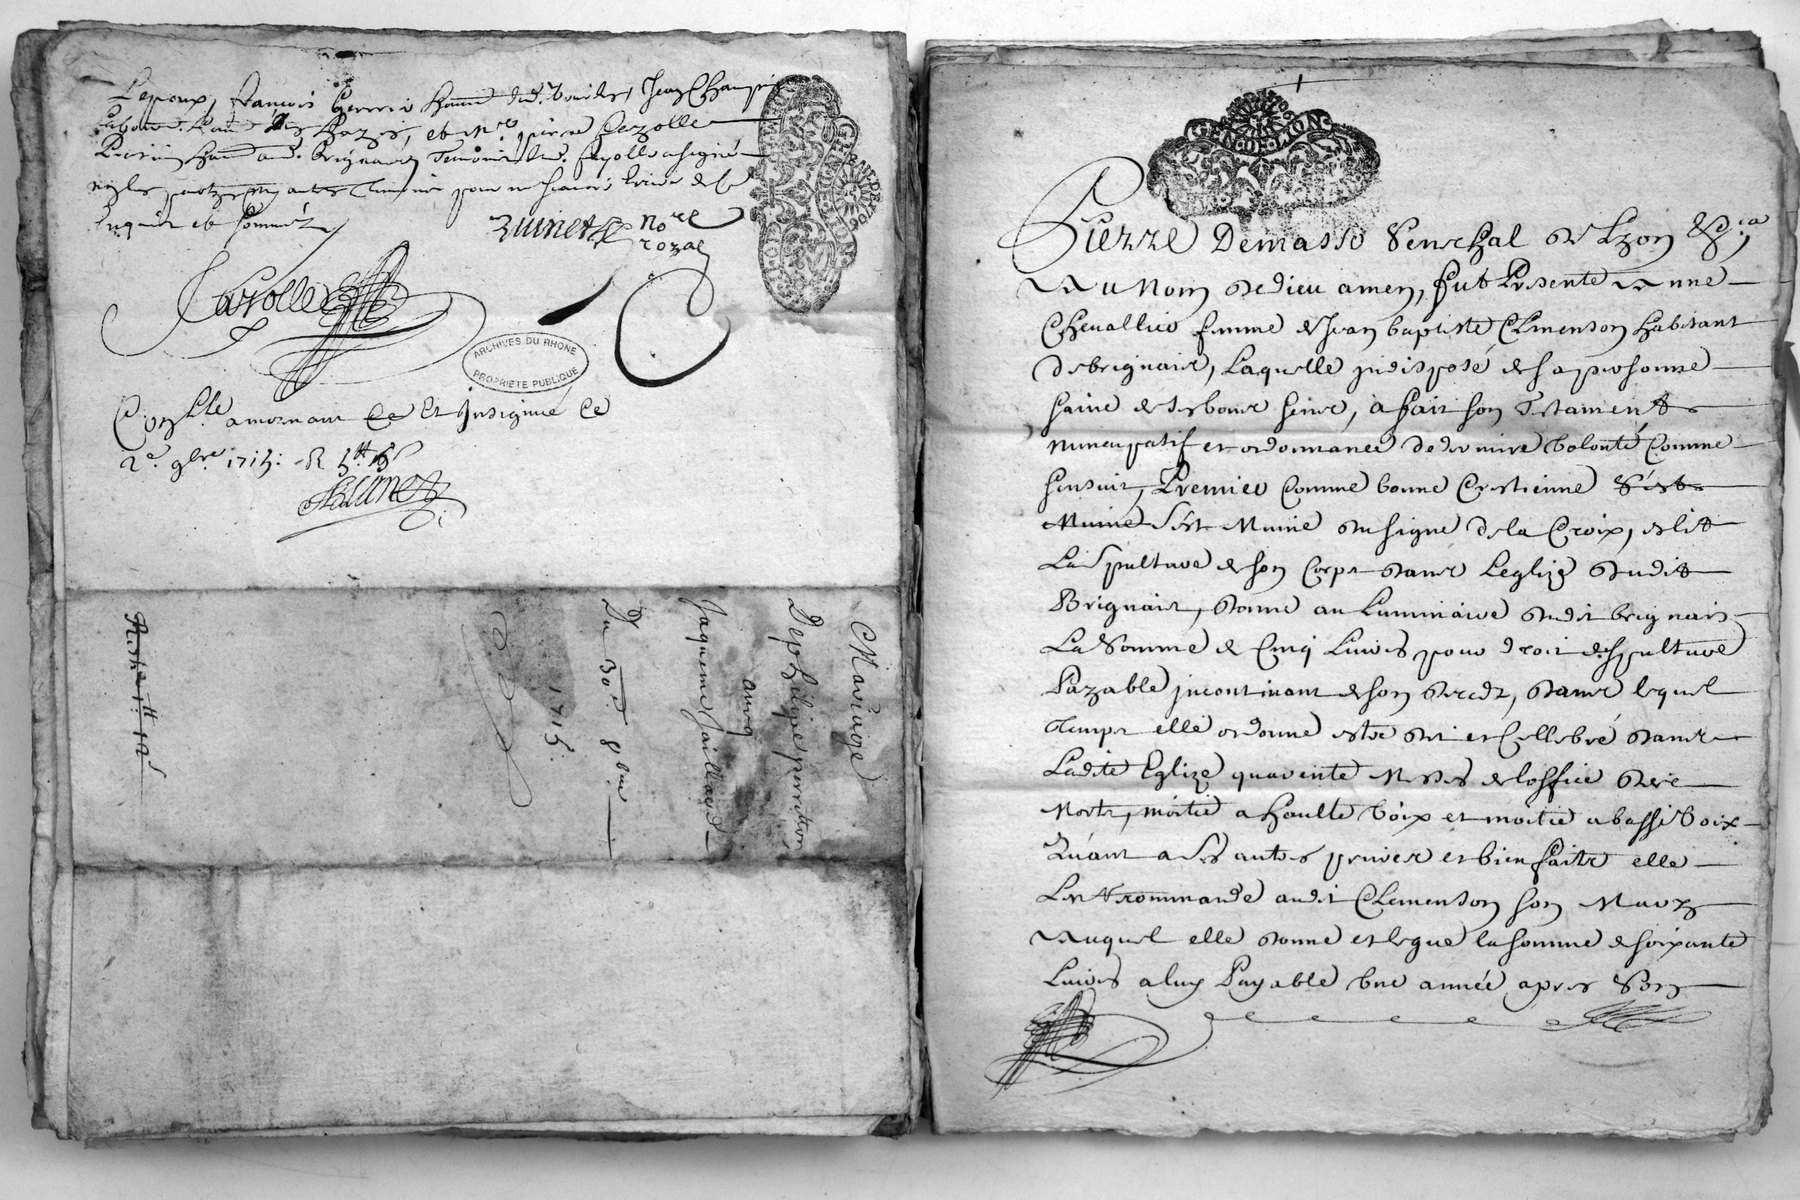 Lepoux, francois
et Me pierre fayolle
Brignais fayolle a signé
non les parties ny autres pour ne scavoir de ce
Enquis et sommés
Quinet
Nore
royal
fayolle
ARCHIVES DU RHONE
PROPRIETE PUBLIQUE
GEN. DE LION
Conlle a mornant Ce Et Insignué Ce
2e 9bre 1715: R
Quinet
Mariage
De philipe
avecq
Jaqueme Gaillard
Du 30e 8bre
1715:
GEN. DE LION
Pierre Demasso Senechal de Lyon &c.a
Au Nom de dieu amen, fut Presente Anne
Chevallier femme de Jean baptiste Clemenson habitant
de brignais, Laquelle indisposé de sa personne
saine de ses bons sens, a fait son Testament
nuncupatif et ordonnance de derniere volonté Comme
sensuit, Premier Comme bonne Crestienne S'est
Munie S'est Munie du signe de la Croix, eslit
La Sepulture de son Corps dans Leglize dudit
Brignais, donne au Luminaire dudit brignais
La Somme de Cinq Livres pour droit de sepulture
Payable incontinant de son deceds, dans lequel
Temps elle ordonne estre dit et Cellebré dans
Ladite Eglize quarente Messes de loffice des
Morts, moitié a haulte voix et moitié a basse voix
Quant a Ses autres prieres et bienfaits elle
Les recommande audit Clemenson son Mary
Auquel elle donne et legue la somme de soixante
Livres a luy Payable une année apres Son